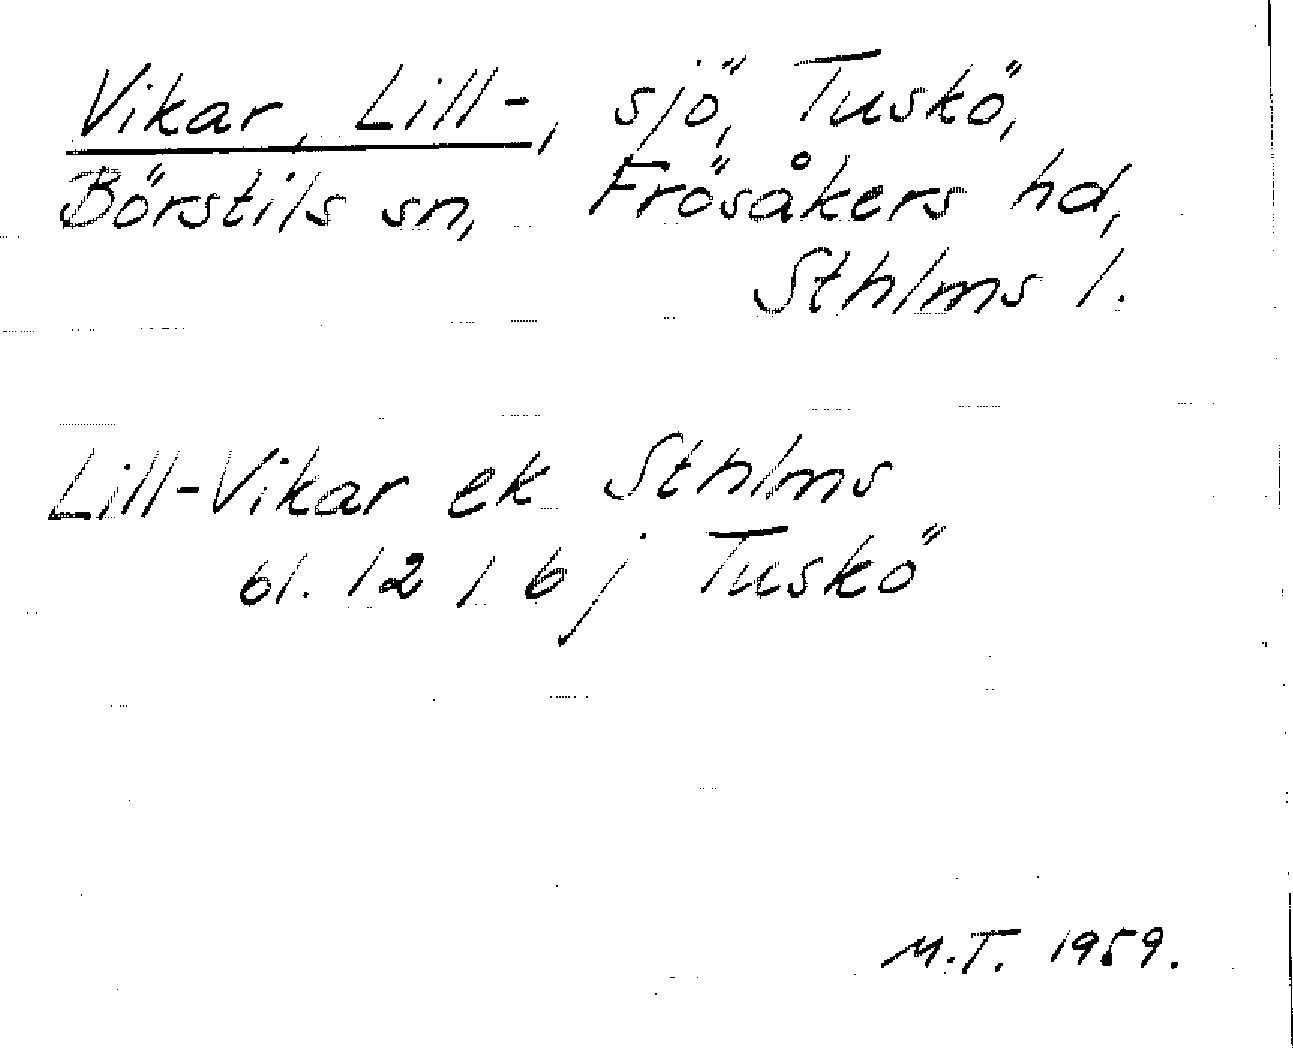 Vikar, Lill-, sjö, Tuskö,
Börstils sn, Frösåkers hd,
Sthlms l.
Lill-Vikar ek Sthlms
bl. 12 1 6 j Tuskö
M.T. 1959.